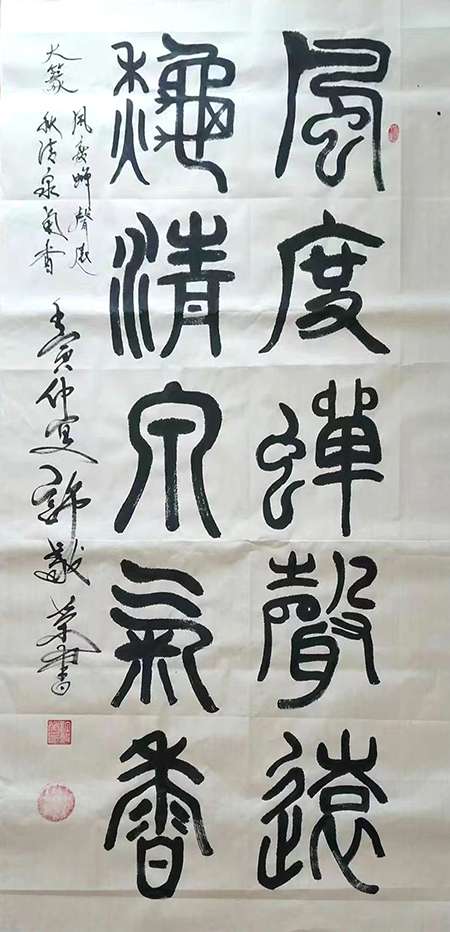 風度蟬聲遠
龝清泉氣香
大篆
風度蟬聲遠
秋清泉氣香
壬寅仲夏許敬榮書